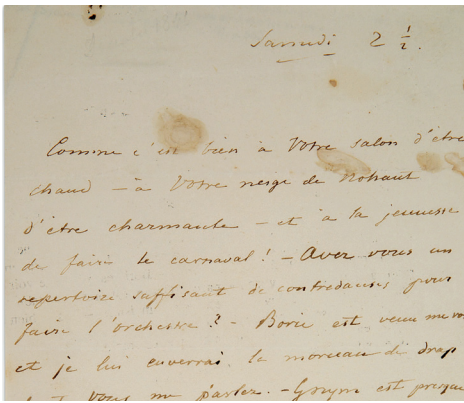 Samedi 2 ½.
Comme c'est bien à Votre salon d'être
chaud – à Votre neige de Nohant
d'être charmante – et à la jeunesse
de faire le carnaval! – Avez vous un
repertoire suffisant de contredanses pour
faire l'orchestre? – Borie est venu me voir
et je lui enverrai le morceau de drap
vous me parlez. – Grzym est presque